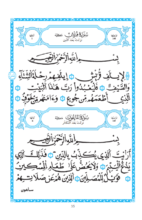 سُورَةُ قُرَيْشٍ
بِسْمِ اللَّهِ الرَّحْمَٰنِ الرَّحِيمِ
لِإِيلَافِ قُرَيْشٍ إِيلَافِهِمْ رِحْلَةَ الشِّتَاءِ
وَالصَّيْفِ فَلْيَعْبُدُوا رَبَّ هَٰذَا الْبَيْتِ
الَّذِي أَطْعَمَهُم مِّن جُوعٍ وَآمَنَهُم مِّنْ خَوْفٍ
سُورَةُ الْمَاعُونِ
بِسْمِ اللَّهِ الرَّحْمَٰنِ الرَّحِيمِ
أَرَأَيْتَ الَّذِي يُكَذِّبُ بِالدِّينِ فَذَٰلِكَ الَّذِي
يَدُعُّ الْيَتِيمَ وَلَا يَحُضُّ عَلَىٰ طَعَامِ الْمِسْكِينِ
فَوَيْلٌ لِّلْمُصَلِّينَ الَّذِينَ هُمْ عَن صَلَاتِهِمْ
سَاهُونَ